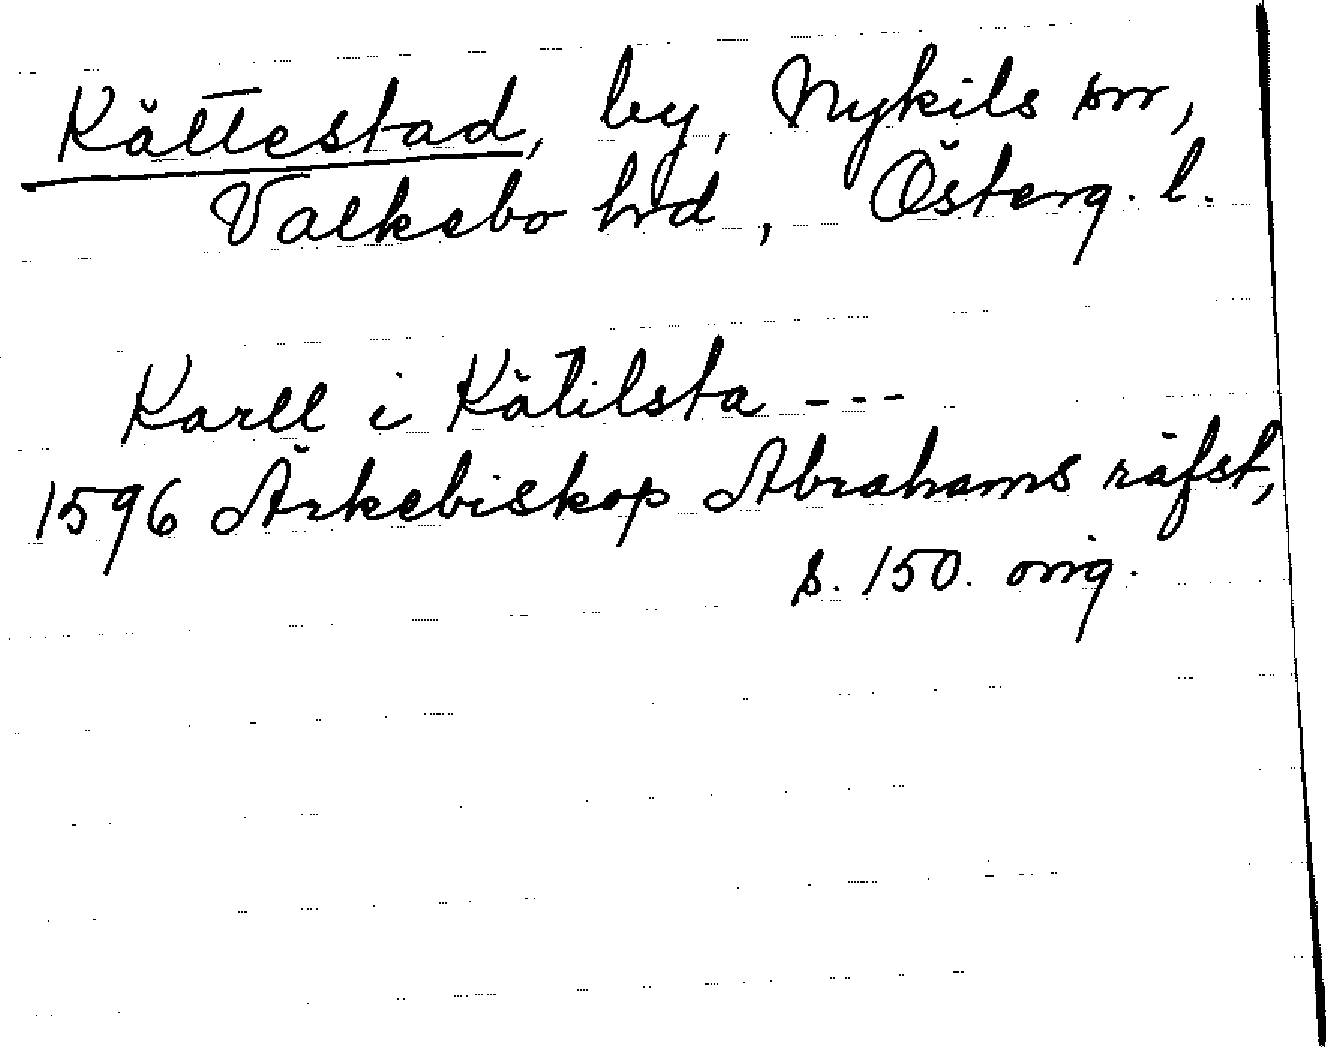 Kättestad, by, Nykils sn,
Valkebo hrd, Österg. l.
Karll i Kätilsta ---
1596 Ärkebiskop Abrahams räfst,
s. 150. orig.